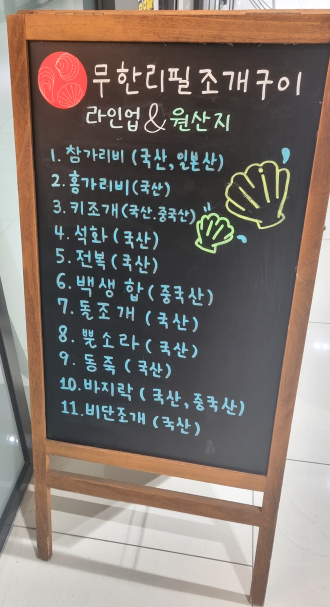 무한리필조개구이
라인업 & 원산지
1. 참가리비 (국산, 일본산)
2. 홍가리비 (국산)
3. 키조개 (국산. 중국산)
4. 석화 (국산)
5. 전복 (국산)
6. 백생합 (중국산)
7. 돌조개 (국산)
8. 뿔소라 (국산)
9. 동죽 (국산)
10. 바지락 (국산, 중국산)
11. 비단조개 (국산)